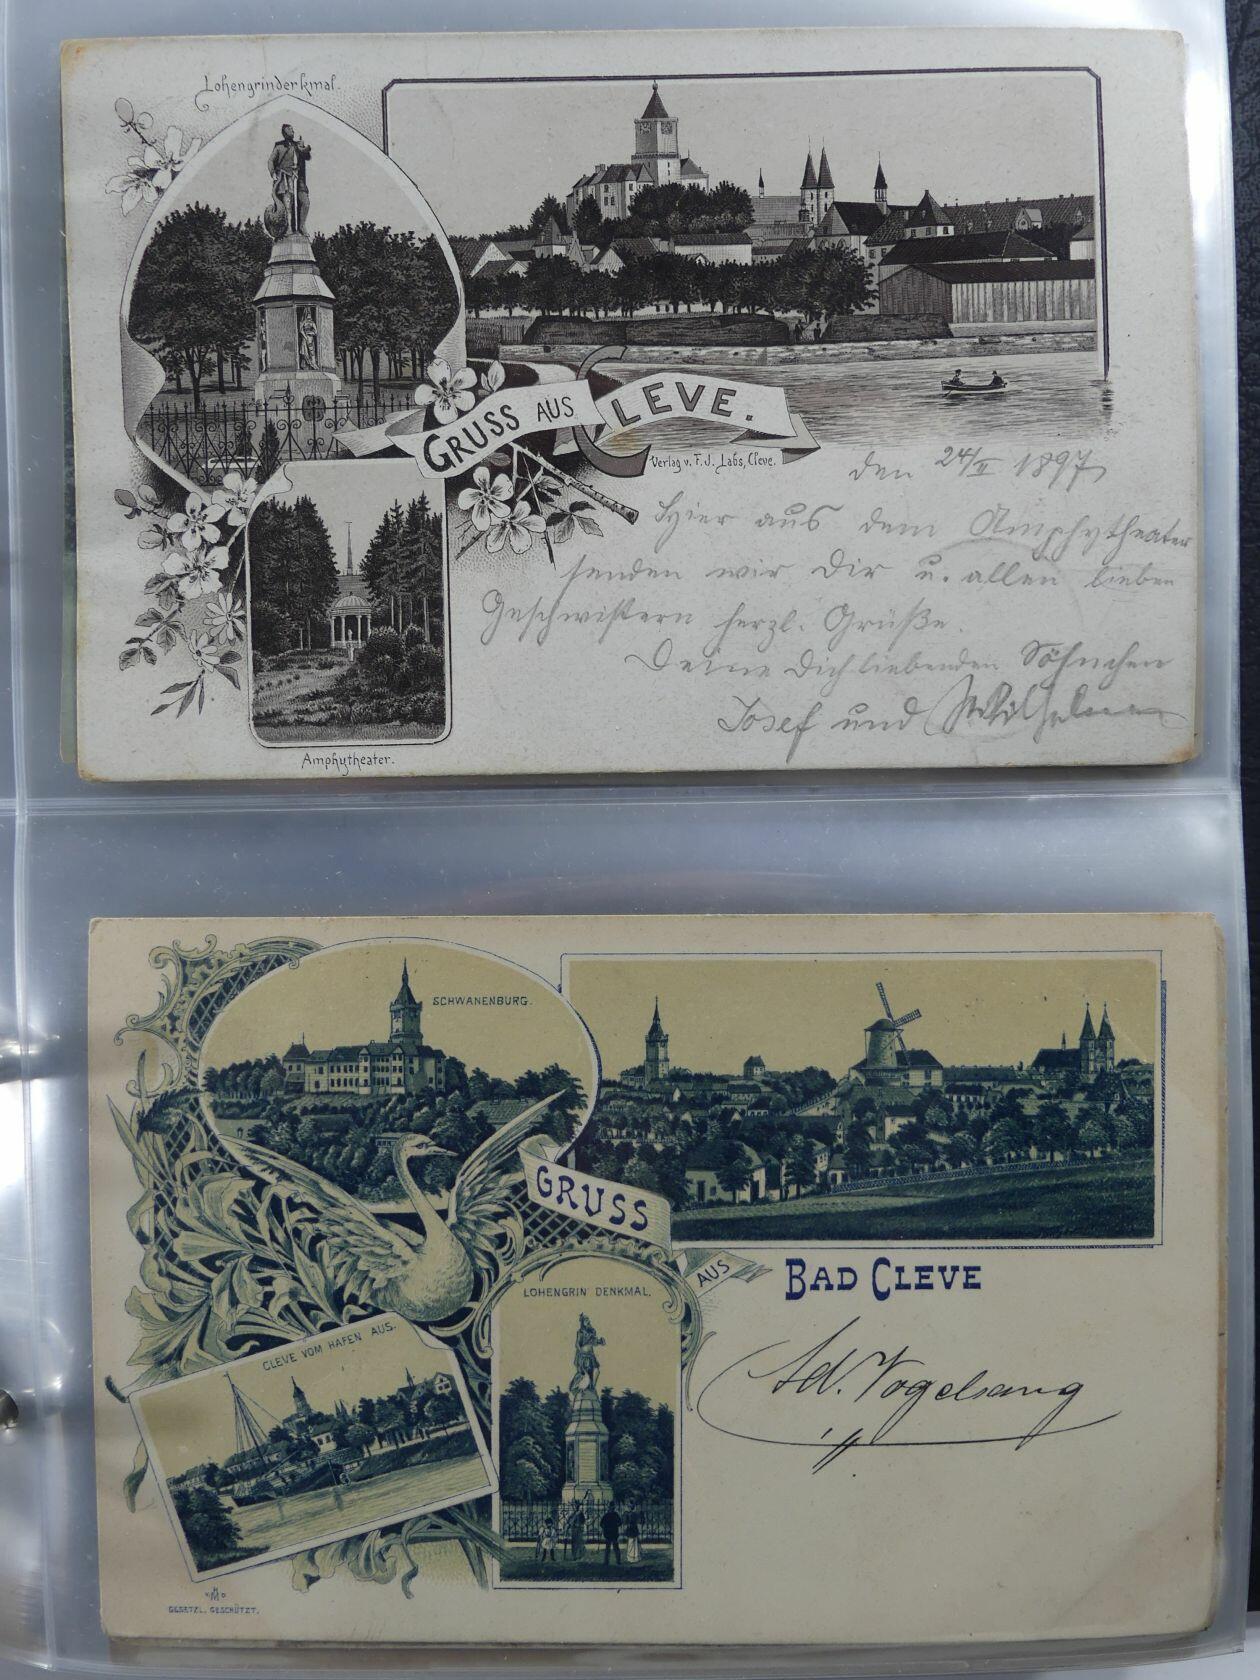 Lohengrinderkmal.
GRUSS AUS CLEVE.
Verlag v. F. J. Labs, Cleve.
Amphytheater.
den 24/II 1897
Hier aus dem Amphytheater
senden wir Dir u. allen lieben
Geschwistern herzl. Grüße.
Deine Dich liebenden Söhnchen
Josef und Wilhelm
SCHWANENBURG.
GRUSS
AUS
BAD CLEVE
LOHENGRIN DENKMAL.
CLEVE VOM HAFEN AUS.
Ad. Vogelsang
GESETZL. GESCHÜTZT.